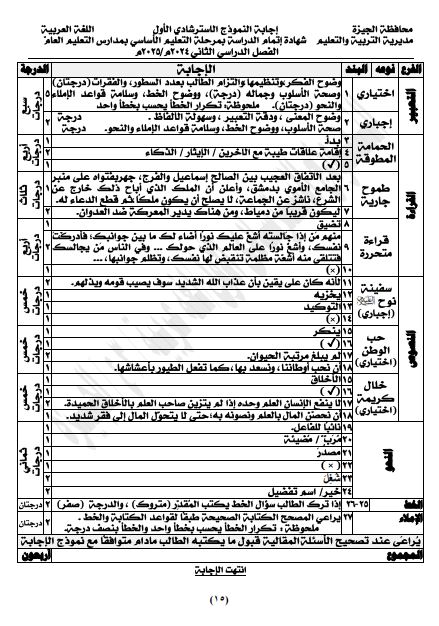 محافظة الجيزة
إجابة النموذج الاسترشادي الأول
اللغة العربية
مديرية التربية والتعليم
شهادة إتمام الدراسة بمرحلة التعليم الأساسي بمدارس التعليم العام
الفصل الدراسي الثاني ٢٠٢٤م/٢٠٢٥م
الفرع نوعه البند الإجابة الدرجة
التعبير
اختياري ١
وضوح الفكر؛وتنظيمها والتزام الطالب بعدد السطور، والفقرات (درجتان)
صحة الأسلوب وجماله (درجة)، ووضوح الخط، وسلامة قواعد الإملاء
والنحو (درجتان). ملحوظة: تكرار الخطأ يحسب بخطأ واحد
٥
سبع درجات
إجباري ٢
وضوح المعنى، ودقة التعبير ، وسهولة الألفاظ. درجة
صحة الأسلوب، ووضوح الخط، وسلامة قواعد الإملاء والنحو. درجة
٢
القراءة
الحمامة المطوقة
٣ بدأ ١
٤ إقامة علاقات طيبة مع الآخرين / الإيثار / الذكاء ٢
٥ (✓) ١
أربع درجات
طموح جارية
٦ بعد الاتفاق العجيب بين الصالح إسماعيل والفرنج، جهر بفتواه على منبر
الجامع الأموي بدمشق، وأعلن أن الملك الذي أباح ذلك خارج عن
الشرع، ناشز عن الجماعة، لا يصلح أن يكون ملكًا ثم قطع الدعاء له.
٢
٧ ليكون قريبا من دمياط، ومن هناك يدير المعركة ضد العدوان. ١
ثلاث درجات
قراءة متحررة
٨ تضيق ١
٩ منهم من إذا جالسته أشع عليك نورا أضاء لك ما بين جوانبك، فأدركت
نفسك، وأشع نورًا على العالم الذي حولك ... وفي الناس من يجالسك
فتتلقى منه أشعة مظلمة تنقبض لها نفسك، وتظلم جوانبها،..
٢
١٠ (×) ١
أربع درجات
النصوص
سفينة نوح (إجباري)
١١ لأنه كان على يقين بأن عذاب الله الشديد سوف يصيب قومه ويذلهم. ٢
١٢ يخزيه ١
١٣ التوكيد ١
١٤ (×) ١
خمس درجات
حب الوطن (اختياري)
١٥ ينكر ١
١٦ (✓) ١
١٧ لم يبلغ مرتبة الحيوان. ٢
١٨ أن نحب أوطاننا، ونسعد بها، كما تفعل الطيور بأعشاشها. ١
خمس درجات
خلال كريمة (اختياري)
١٥ الأخلاق ١
١٦ (✓) ١
١٧ لا ينفع الإنسان العلم وحده إذا لم يتزين صاحب العلم بالأخلاق الحميدة. ٢
١٨ أن نحصن المال بالعلم ونصونه به؛ حتى لا يتحول المال إلى فقر شديد. ١
خمس درجات
النحو
١٩ نائبا للفاعل. ١
٢٠ ١
٢١ مصدر ١
٢٢ (×) ١
٢٣ ٢
٢٤ خبر/ اسم تفضيل ٢
ثماني درجات
الخط ٢٥-٢٦ إذا ترك الطالب سؤال الخط يكتب المقدر (متروك) ، والدرجة (صفر) ٢ درجتان
الإملاء ٢٧ يراعي المصحح الكتابة الصحيحة طبقا لقواعد الكتابة والخط .
ملحوظة : تكرار الخطأ يحسب بخطأ واحد والخطأ بنصف درجة.
٢ درجتان
يراعى عند تصحيح الأسئلة المقالية قبول ما يكتبه الطالب مادام متوافقا مع نموذج الإجابة
المجموع أربعون
انتهت الإجابة
(١٥)